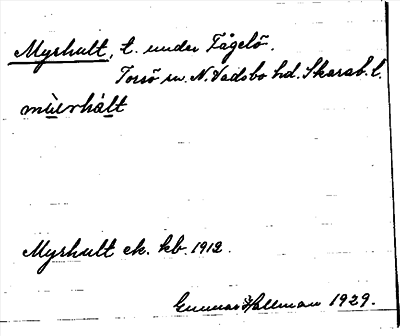 Myrhult, t. under Fågelö.
Torsö sn. N. Vadsbo hd. Skarab. l.
mùrhàlt
Myrhult ek. kb. 1912.
Gunnar Hallman 1929.